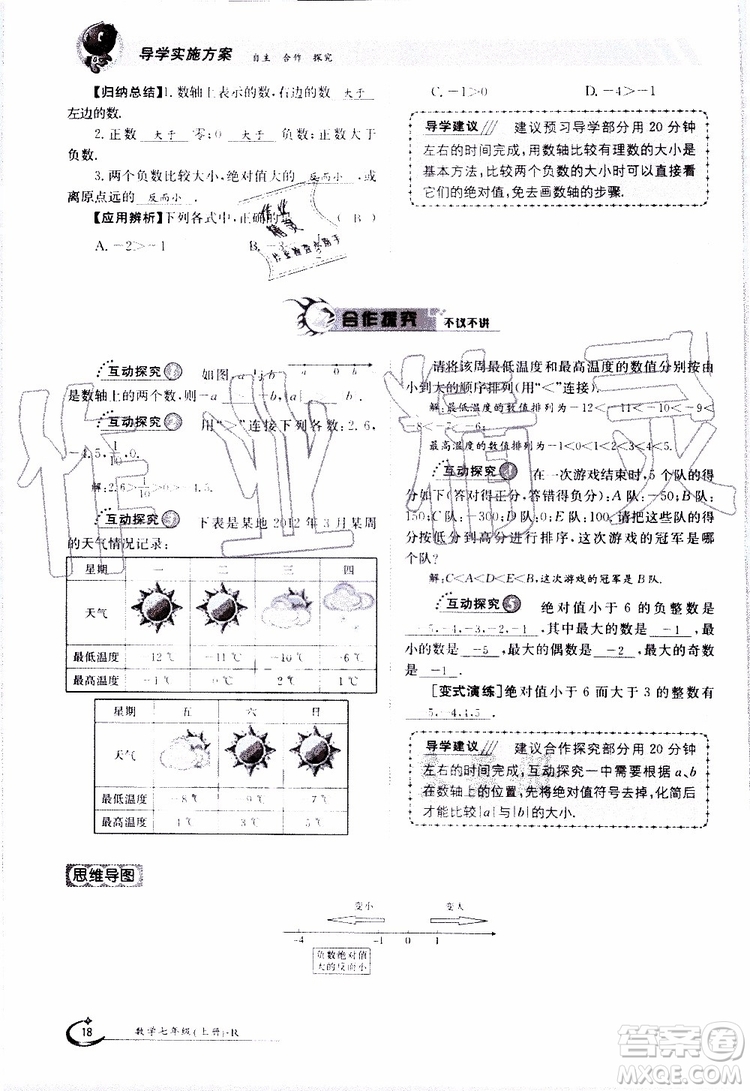 导学实施方案 自主 合作 探究
【归纳总结】1.数轴上表示的数,右边的数 大于
左边的数.
2.正数 大于 零;0 大于 负数;正数大于
负数.
3.两个负数比较大小,绝对值大的 反而小 ,或
离原点远的 反而小 .
【应用辨析】下列各式中,正确的 ( B )
A.-2>-1 B.
C.-1>0 D.-4>-1
导学建议 建议预习导学部分用 20 分钟
左右的时间完成,用数轴比较有理数的大小是
基本方法,比较两个负数的大小时可以直接看
它们的绝对值,免去画数轴的步骤.
合作探究 不议不讲
互动探究 1 如图,a 与 b a 0 b
是数轴上的两个数,则-a -b,|a| |b|.
互动探究 2 用“>”连接下列各数:2.6,
-4.5, 1/10 ,0.
解:2.6>1/10>0>-4.5.
互动探究 3 下表是某地 2012 年 3 月某周
的天气情况记录:
星期 一 二 三 四
天气
最低温度 -12℃ -11℃ -10℃ -6℃
最高温度 -1℃ 0℃ ℃ ℃
星期 五 六 日
天气
最低温度 -8℃ -9℃ -7℃
最高温度 4℃ 3℃ 5℃
请将该周最低温度和最高温度的数值分别按由
小到大的顺序排列(用“<”连接).
解:最低温度的数值排列为-12<-11<-10<-9<
-8<-7<-6.
最高温度的数值排列为-1<0<1<2<3<4<5.
互动探究 4 在一次游戏结束时,5 个队的得
分如下(答对得正分,答错得负分):A 队:-50;B 队:
150;C 队:-300;D 队:0;E 队:100,请把这些队的得
分按低分到高分进行排序,这次游戏的冠军是哪
个队?
解:C<A<D<E<B,这次游戏的冠军是 B 队.
互动探究 5 绝对值小于 6 的负整数是
-5,-4,-3,-2,-1 ,其中最大的数是 -1 ,最小
的数是 -5 ,最大的偶数是 -2 ,最大的奇数
是 -1 .
[变式演练]绝对值小于 6 而大于 3 的整数有
-5,-4,4,5 .
导学建议 建议合作探究部分用 20 分钟
左右的时间完成,互动探究一中需要根据 a、b
在数轴上的位置,先将绝对值符号去掉,化简后
才能比较|a|与|b|的大小.
思维导图
变小 变大
-4 -1 0 1
负数绝对值
大的反而小
18 数学七年级(上册)·R
作业精灵
作业精灵
作业检查小助手
作业帮
MXQE.COM